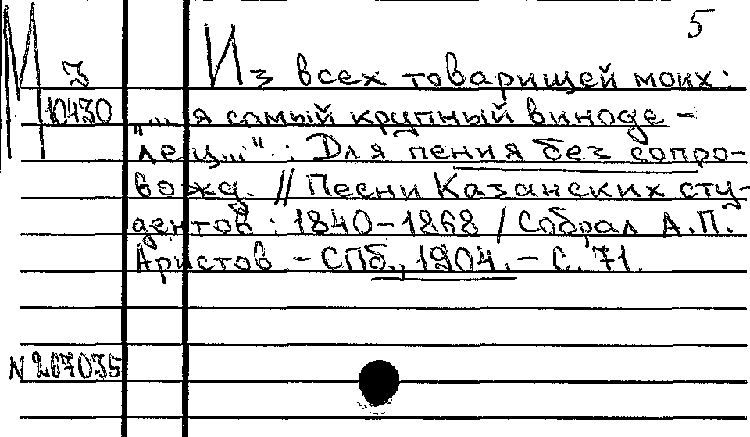 5
М З
10430
Из всех товарищей моих:
"... я самый крупный виноде-
лец...": Для пения без сопро-
вожд. // Песни Казанских сту-
дентов: 1840-1868 / Собрал А.П.
Аристов - СПб., 1904. - С. 71.
N 267035